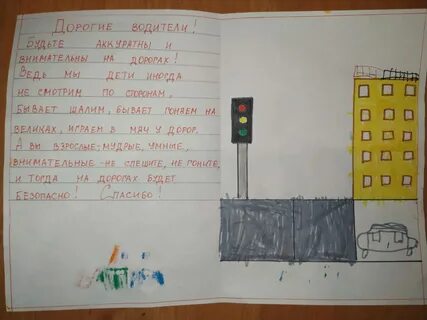 Дорогие водители!
Будьте аккуратны и
внимательны на дорогах!
Ведь мы дети иногда
не смотрим по сторонам,
бывает шалим, бывает гоняем на
великах, играем в мяч у дорог.
А вы взрослые-мудрые, умные,
внимательные-не спешите, не гоните,
и тогда на дорогах будет
безопасно! Спасибо!